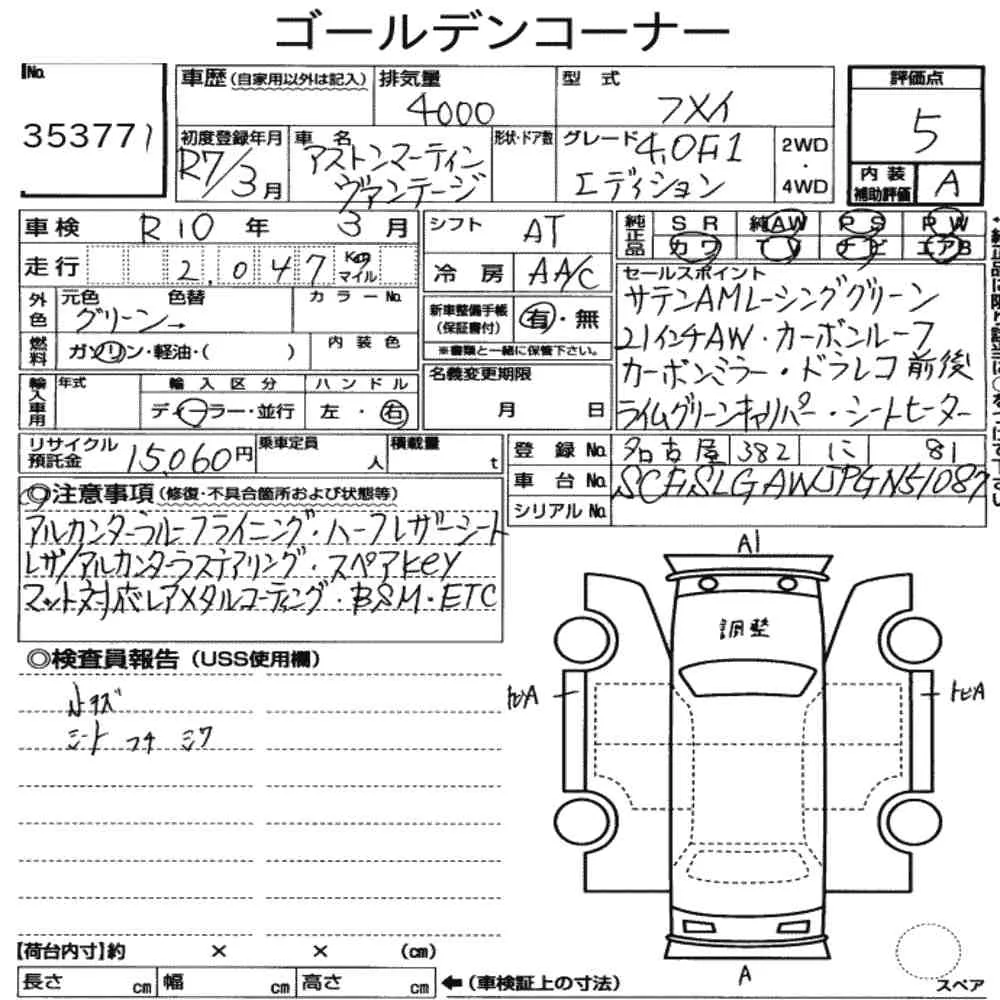 ゴールデンコーナー
No.
353771
車歴(自家用以外は記入)
排気量
4000
型式
フメイ
評価点
5
初度登録年月
R7/3月
車名
アストンマーティン
ヴァンテージ
形状・ドア数
グレード 4.0F1
エディション
2WD
・
4WD
内装
補助評価
A
車検 R10年 3月
シフト AT
純正品
SR 純AW PS PW
カワ TV ナビ エアB
走行 2,047 Km マイル
冷房 AA/C
セールスポイント
サテンAMレーシンググリーン
21インチAW・カーボンルーフ
カーボンミラー・ドラレコ前後
ライムグリーンキャリパー・シートヒーター
外色
元色 色替
グリーン→
カラーNo.
新車整備手帳
(保証書付)
有・無
※書類と一緒に保管下さい。
燃料
ガソリン・軽油・( )
内装色
名義変更期限
月 日
輸入車用
年式
輸入区分
ディーラー・並行
ハンドル
左・右
リサイクル
預託金
15,060円
乗車定員
人
積載量
t
登録No. 名古屋 382 に 81
車台No.
シリアルNo.
◎注意事項(修復・不具合箇所および状態等)
アルカンターラルーフライニング・ハーフレザーシート
レザ/アルカンターラステアリング・スペアkey
マット対応レアメタルコーティング・BSM・ETC
◎検査員報告(USS使用欄)
シート フチ シワ
A1
調整
トビA
トビA
A
スペア
【荷台内寸】約 × × (cm)
長さ cm 幅 cm 高さ cm
←(車検証上の寸法)